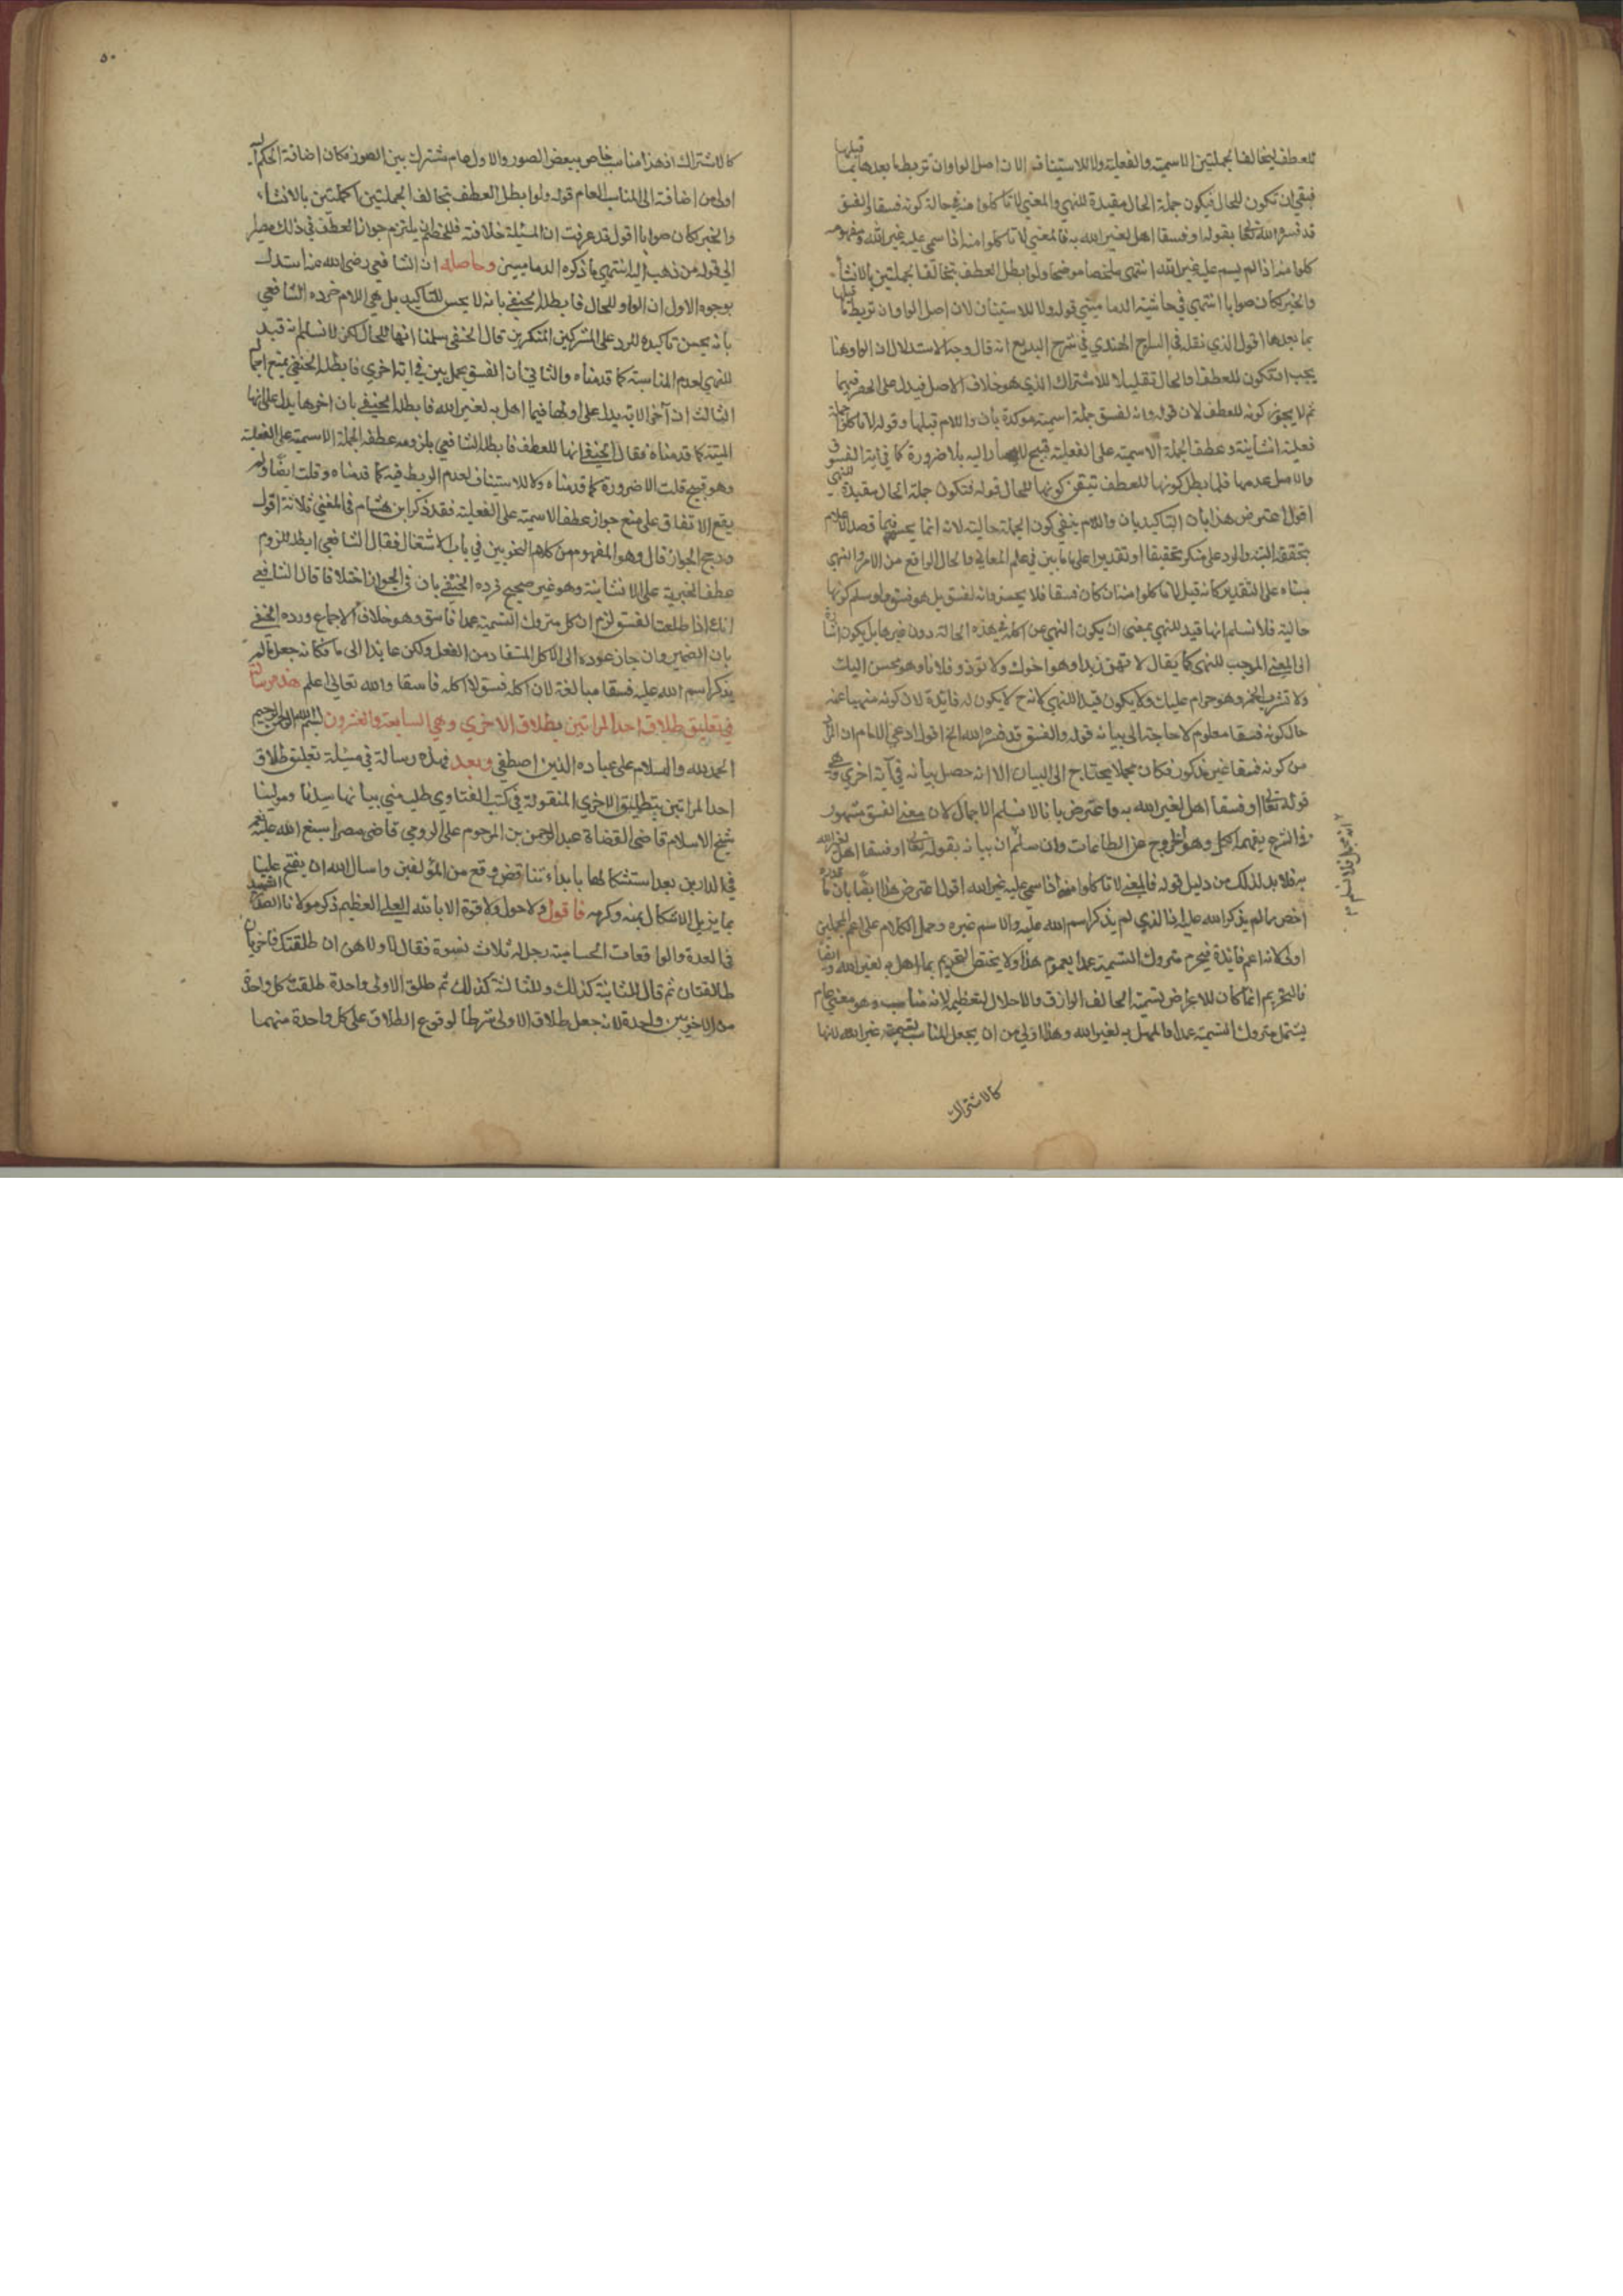 للعطف لتخالف الجملتين الاسمية والفعلية ولا للاستيناف لان اصل الواو ان تربط ما بعدها بما قبلها
فبقي ان تكون للحال فيكون جملة الحال مقيدة للنهي والمعني لا تاكلوا منه في حالة كونه فسقا والفسق
قد فسره الله تعالى بقوله او فسقا اهل لغير الله به فالمعني لا تاكلوا منه اذا سمي عليه غير الله ومفهومه
كلوا منه اذا لم يسم عليه غير الله انتهى ملخصا موضحا ولو ابطل العطف بتخالف الجملتين بالانشاء
والخبر لكان صوابا انتهي في حاشية الدماميني قوله ولا للاستيناف لان اصل الواو ان تربط ما قبلها
بما بعدها اقول الذي نقله في السراج الهندي في شرح البديع انه قال وجه الاستدلال ان الواو هنا
يجب ان تكون للعطف او الحال تقليلا للاشتراك الذي هو خلاف الاصل فيدل على الحصر فيهما
ثم لا يجوز كونه للعطف لان قوله وانه لفسق جملة اسمية موكدة بان واللام قبلها وقوله لا تاكلوا جملة
فعلية انشائية وعطف الجملة الاسمية على الفعلية قبيح لا يصار اليه بلا ضرورة كما في اية القذف
والاصل عدمها فلما بطل كونها للعطف تيقن كونها للحال قوله فتكون جملة الحال مقيدة للنهي
اقول اعترض هذا بان التاكيد بان واللام ينفي كون الجملة حالية لانه انما يحسن فيما قصد الاعلام
بتحققه البتة والرد على منكر تحقيقا او تقديرا على ما بين في علم المعاني والحال الواقع من الامر والنهي
مبناه على التقدير كانه قيل لا تاكلوا منه ان كان فسقا فلا يحسن وانه لفسق بل هو فسق ولو سلم كونها
حالية فلا نسلم انها قيد للنهي بمعنى ان يكون النهي عن اكله في هذه الحالة دون غيرها بل يكون اشارة
الى المعنى الموجب للنهي كما يقال لا تهن زيدا وهو اخوك ولا توذ فلانا وهو محسن اليك
ولا تشرب الخمر وهو حرام عليك ولا يكون قيدا للنهي لانه ح لا يكون له فائدة لان كونه منهيا عنه
حال كونه فسقا معلوم لا حاجة الى بيانه قوله والفسق قد فسره الله الخ اقول ادعي الامام ان
من كونه فسقا غير مذكور فكان مجملا يحتاج الى البيان الا انه حصل بيانه في آية اخري وهي
قوله تعالى او فسقا اهل لغير الله به واعترض بانا لا نسلم الاجمال لان معني الفسق مشهور
وفي الشرع وهو الخروج عن الطاعات وان سلم ان بيانه بقوله تعالى او فسقا اهل لغير الله
به فلا بد لذلك من دليل قوله فالمعني لا تاكلوا منه اذا سمي عليه غير الله اقول اعترض هذا ايضا بان
اخص مما لم يذكر الله عليه اذ الذي لم يذكر اسم الله عليه والاسم غيره وحمل الكلام على اعم المحملين
اولى لانه اعم فائدة فيحرم متروك التسمية عمدا بعموم هذا ولا يختص التحريم بما اهل به لغير الله
فالتحريم انما كان للاعراض بتسمية الخالق الرازق والاحلال لتعظيم لانه مناسب وهو معني عام
يشتمل متروك التسمية عمدا والمهل به لغير الله وهذا اولي من ان يجعل المناسب تسمية غير الله لانها
كالاشتراك
٥٠
كالاشتراك اذ هذا مناسب خاص ببعض الصور والاول عام مشترك بين الصور فكان اضافة الحكم اليه
اولى من اضافته الى المناسب العام قوله ولو ابطل العطف بتخالف الجملتين بالانشاء
والخبر لكان صوابا اقول قد عرفت ان المسئلة خلافية فللخصم ان يلتزم جواز العطف في ذلك
الى قوله من ذهب اليه انتهي ما ذكره الدماميني وحاصله ان الشافعي رضي الله عنه استدل
بوجوه الاول ان الواو للحال فابطله الحنفي بانه لا يحسن للتاكيد بل هي اللام فرده الشافعي
بانه يحسن تاكيده للرد على المشركين المنكرين قال الحنفي سلمنا انها للحال لكن لا نسلم انه قيد
للنهي لعدم المناسبة كما قدمناه والثاني ان الفسق مجمل بين في اية اخري فابطله الحنفي بمنع اجماله
الثالث ان آخر الاية يدل على اولها فيما اهل به لغير الله فابطله الحنفي بان اخرها يدل على انها
الميتة كما قدمناه فقال الحنفي انها للعطف فابطله الشافعي بلزومه عطف الجملة الاسمية على الفعلية
وهو قبيح قلت الا ضرورة كما قدمناه ولا للاستيناف لعدم الربط فيه كما قدمناه وقلت ايضا ولم
يقع الاتفاق على منع جواز عطف الاسمية على الفعلية فقد ذكر ابن هشام في المغني ثلاثة اقول
ورجح الجواز قال وهو المفهوم من كلام النحويين في باب الاشتغال فقال الشافعي ابطله للزوم
عطف الخبرية على الانشائية وهو غير صحيح فرده الحنفي بان في الجواز اختلافا قال الشافعي
انك اذا طلعت الفسق لزم ان كل متروك التسمية عمدا فاسق وهو خلاف الاجماع ورده الحنفي
بان الضمير وان جاز عوده الى الاكل المستفاد من الفعل ولكن عائدا الى ما فكانه جعل ما لم
يذكر اسم الله عليه فسقا مبالغة لان اكله فسق لا اكله فاسقا والله تعالى اعلم هذه رسالة
في تعليق طلاق احد المراتين بطلاق الاخري وهي السابعة والعشرون بسم الله الرحمن الرحيم
الحمد لله والسلام على عباده الذين اصطفي وبعد فهذه رسالة في مسئلة تعليق طلاق
احد المراتين بتطليق الاخري المنقولة في كتب الفتاوي طلب مني بيانها سيدنا ومولينا
شيخ الاسلام قاضي القضاة عبد الرحمن بن المرحوم على الرومي قاضي مصر اسبغ الله عليه نعمه
في الدارين بعد استشكالها بابداء تناقض وقع من المؤلفين واسال الله ان يفتح علينا
بما يزيل الاشكال بمنه وكرمه فاقول ولا حول ولا قوة الا بالله العلي العظيم ذكر مولانا الصدر الشهيد
في العدة والواقعات الحسامية رجل له ثلاث نسوة فقال لاولاهن ان طلقتك فاخرتان
طالقتان ثم قال للثانية كذلك وللثالثة كذلك ثم طلق الاولى واحدة طلقت كل واحدة
من الاخريين واحدة لانه جعل طلاق الاولى شرطا لوقوع الطلاق على كل واحدة منهما